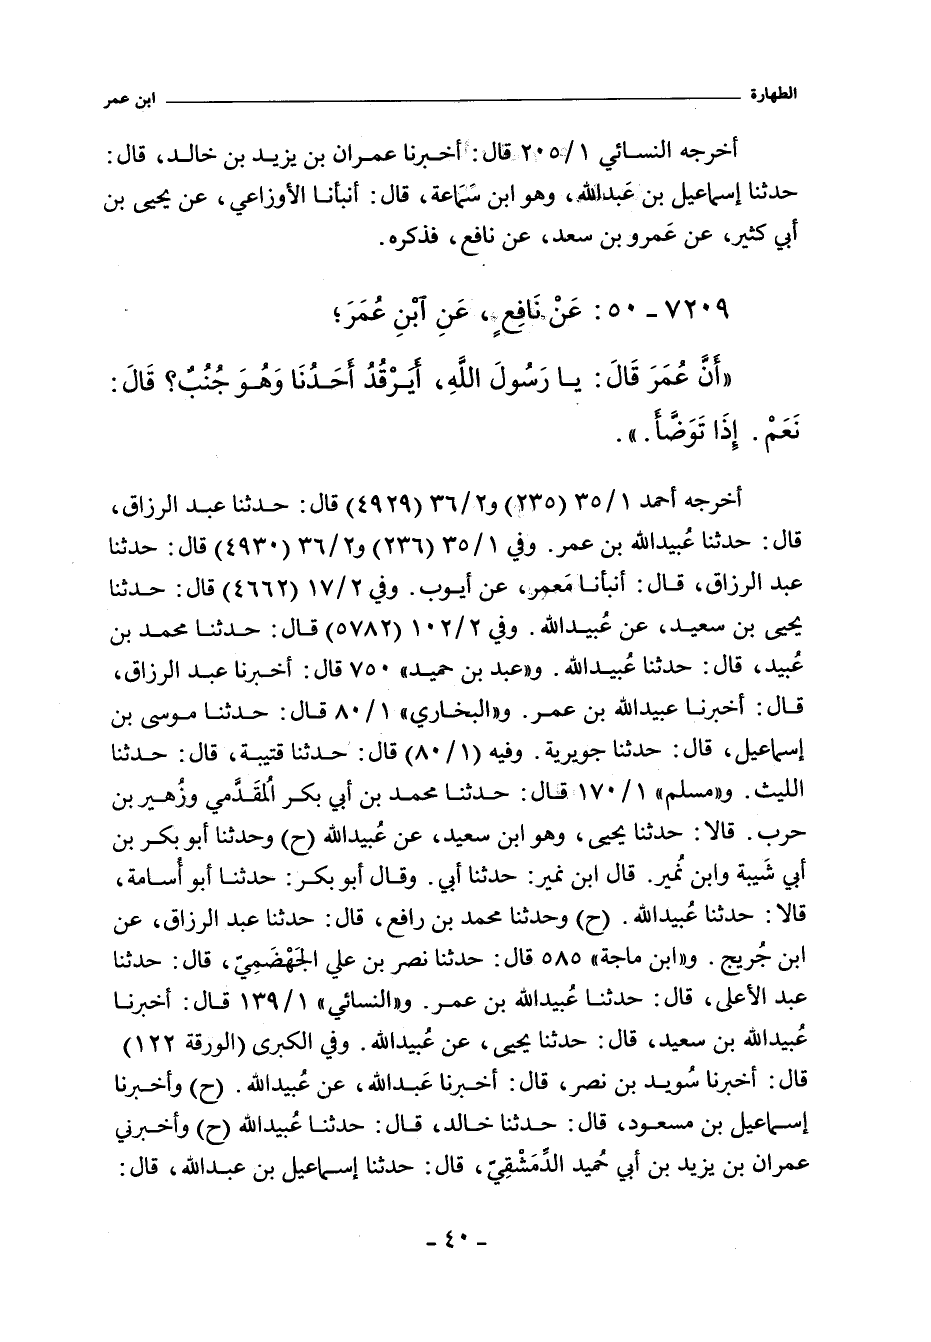 الطهارة ــــــــــــــــــــــــــــــــ ابن عمر
أخرجه النسائي ٢٠٥/١ قال: أخبرنا عمران بن يزيد بن خالد، قال:
حدثنا إسماعيل بن عَبدالله، وهو ابن سَمَاعة، قال: أنبأنا الأوزاعي، عن يحيى بن
أبي كثير، عن عَمرو بن سعد، عن نافع، فذكره.
٧٢٠٩ ـ ٥٠: عَنْ نَافِعٍ، عَنِ آبْنِ عُمَرَ؛
«أَنَّ عُمَرَ قَالَ: يا رَسُولَ اللَّهِ، أَيَرْقُدُ أَحَدُنَا وَهُوَ جُنُبٌ؟ قَالَ:
نَعَمْ. إِذَا تَوَضَّأَ.».
أخرجه أحمد ٣٥/١ (٢٣٥) و٣٦/٢ (٤٩٢٩) قال: حدثنا عبد الرزاق،
قال: حدثنا عُبيدالله بن عمر. وفي ٣٥/١ (٢٣٦) و٣٦/٢ (٤٩٣٠) قال: حدثنا
عبد الرزاق، قال: أنبأنا مَعمر، عن أيوب. وفي ١٧/٢ (٤٦٦٢) قال: حدثنا
يحيى بن سعيد، عن عُبيدالله. وفي ١٠٢/٢ (٥٧٨٢) قال: حدثنا محمد بن
عُبيد، قال: حدثنا عُبيدالله. و«عبد بن حميد» ٧٥٠ قال: أخبرنا عبد الرزاق،
قال: أخبرنا عبيدالله بن عمر. و«البخاري» ٨٠/١ قال: حدثنا موسى بن
إسماعيل، قال: حدثنا جويرية. وفيه (٨٠/١) قال: حدثنا قتيبة، قال: حدثنا
الليث. و«مسلم» ١٧٠/١ قال: حدثنا محمد بن أبي بكر المُقَدَّمي وزُهير بن
حرب. قالا: حدثنا يحيى، وهو ابن سعيد، عن عُبيدالله (ح) وحدثنا أبو بكر بن
أبي شَيبة وابن نُمير. قال ابن نمير: حدثنا أبي. وقال أبو بكر: حدثنا أبو أُسامة،
قالا: حدثنا عُبيدالله. (ح) وحدثنا محمد بن رافع، قال: حدثنا عبد الرزاق، عن
ابن جُريج. و«ابن ماجة» ٥٨٥ قال: حدثنا نصر بن علي الجَهْضَمِيّ، قال: حدثنا
عبد الأعلى، قال: حدثنا عُبيدالله بن عمر. و«النسائي» ١٣٩/١ قال: أخبرنا
عُبيدالله بن سعيد، قال: حدثنا يحيى، عن عُبيدالله. وفي الكبرى (الورقة ١٢٢)
قال: أخبرنا سُويد بن نصر، قال: أخبرنا عَبدالله، عن عُبيدالله. (ح) وأخبرنا
إسماعيل بن مسعود، قال: حدثنا خالد، قال: حدثنا عُبيدالله (ح) وأخبرني
عمران بن يزيد بن أبي حُميد الدِّمَشْقِيّ، قال: حدثنا إسماعيل بن عبدالله، قال:
ـ ٤٠ ـ